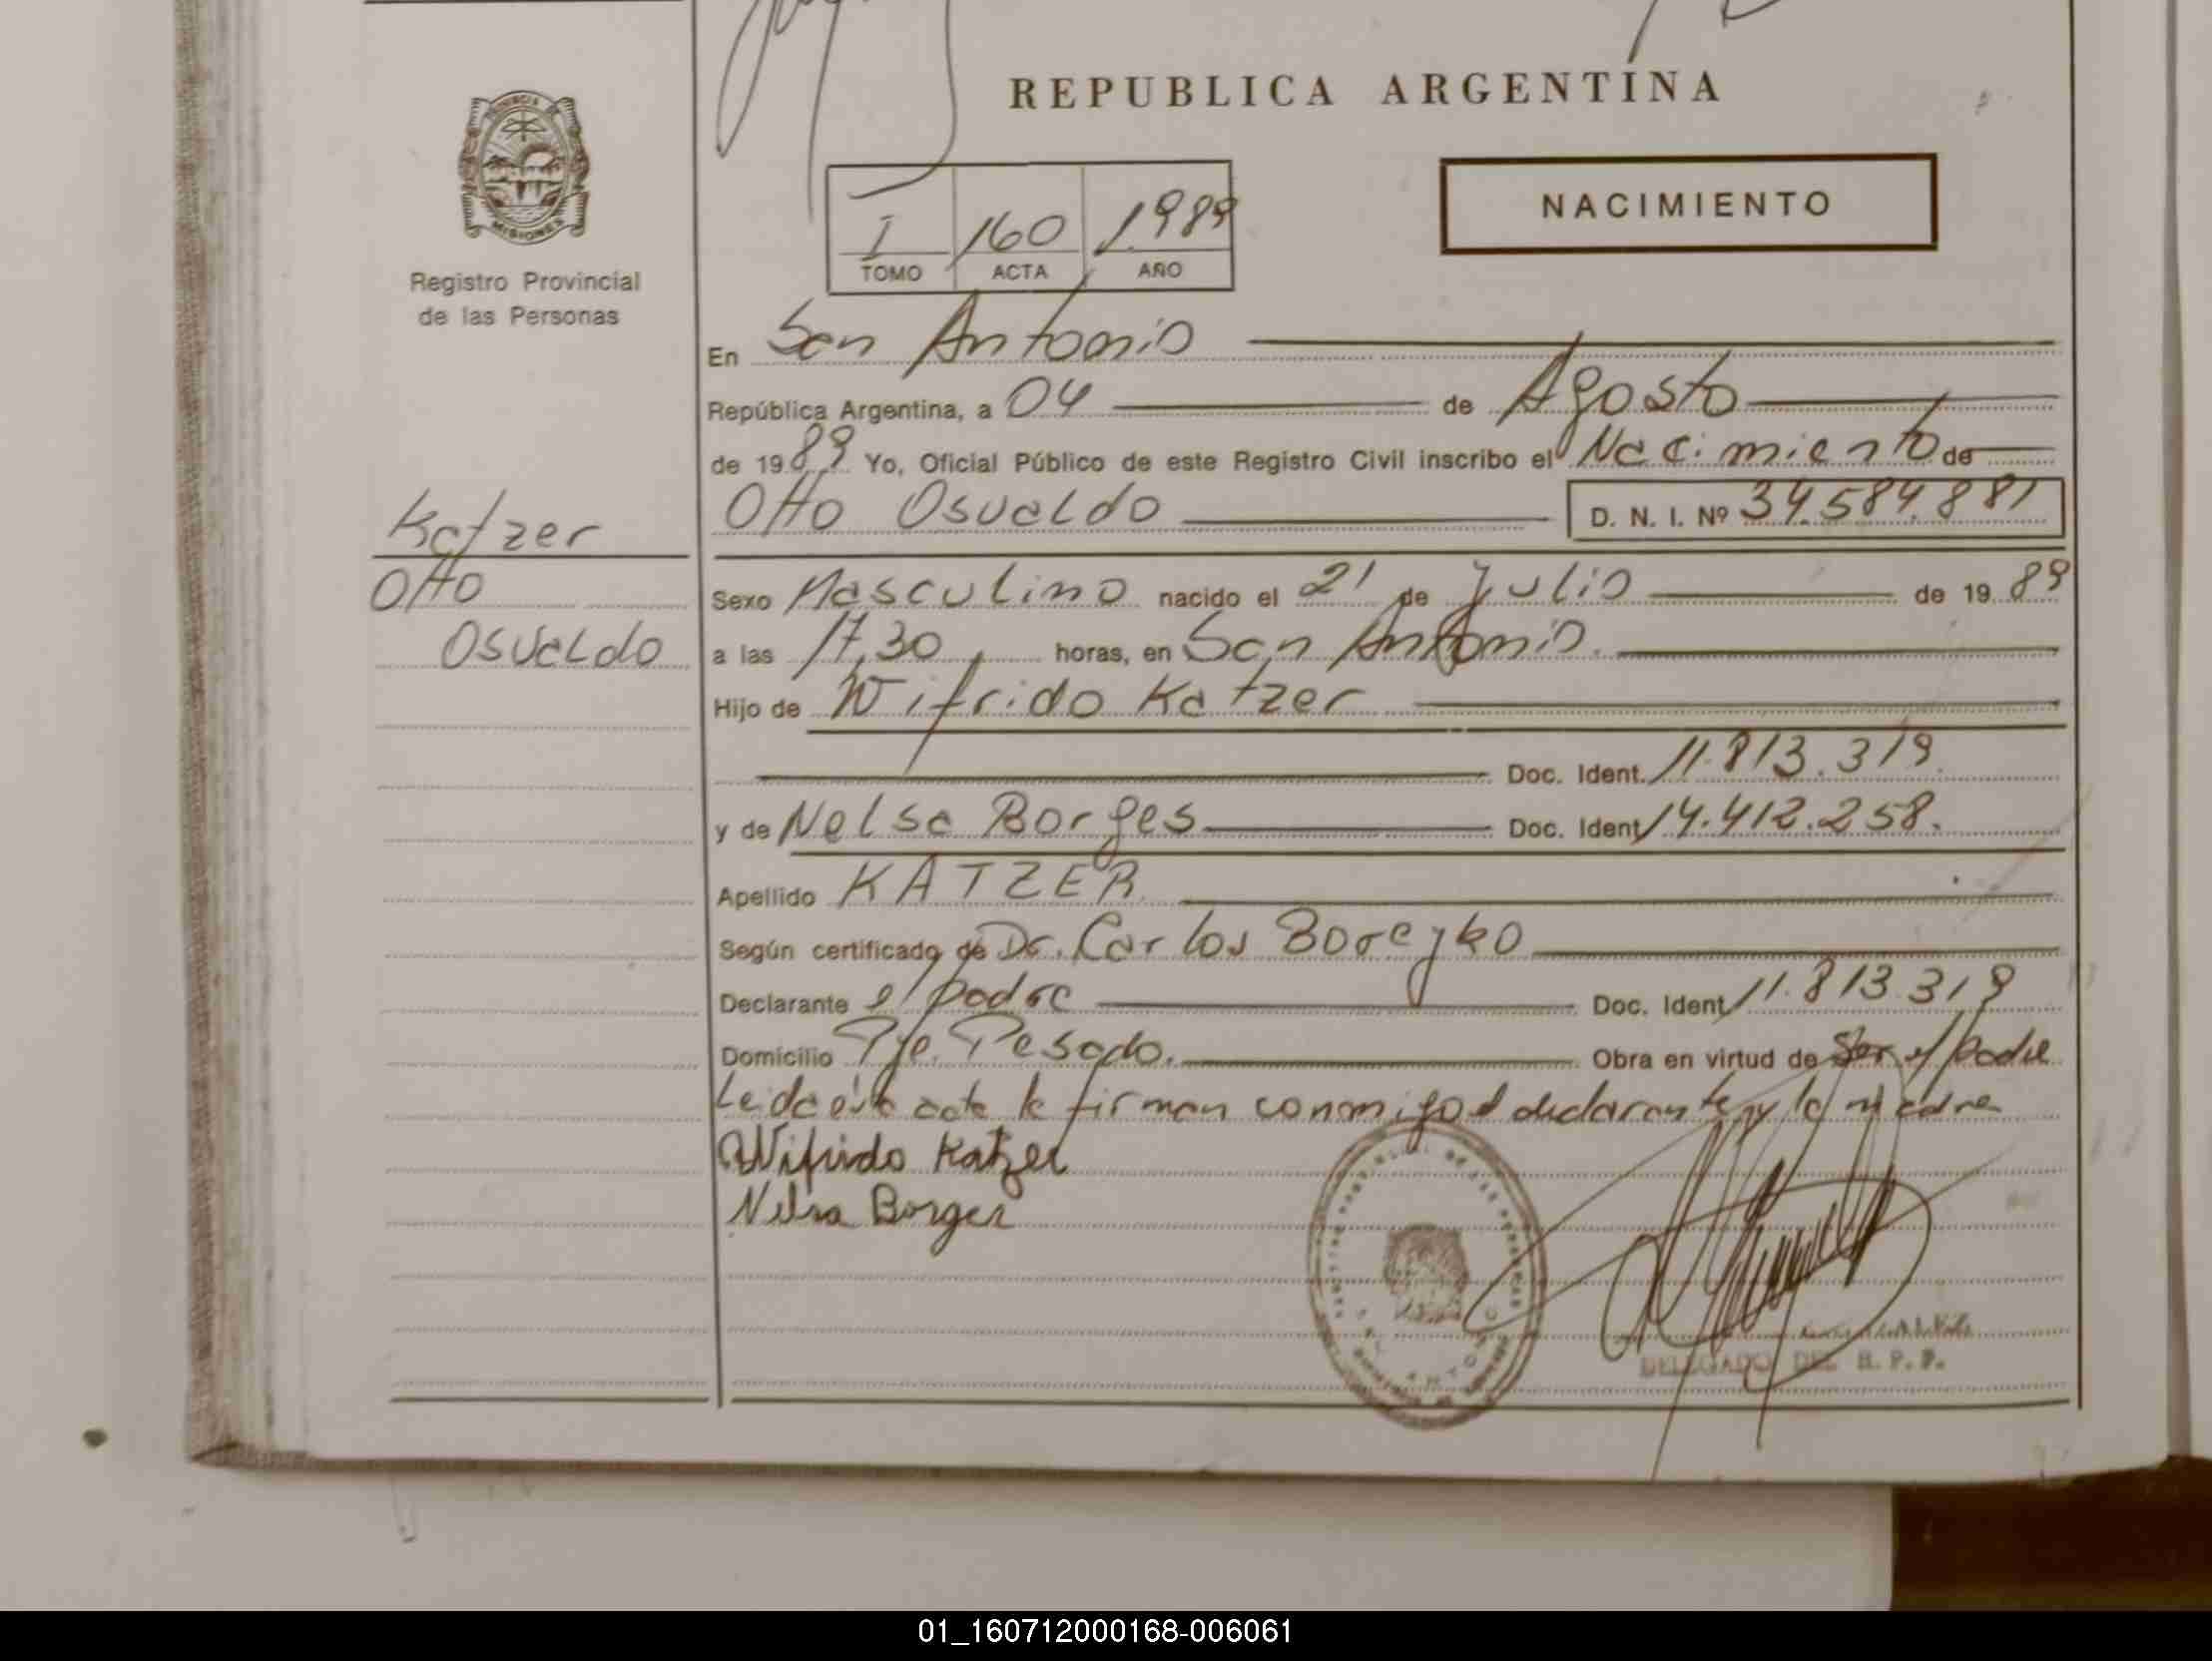 REPUBLICA ARGENTINA
PROVINCIA
MISIONES
Registro Provincial
de las Personas
NACIMIENTO
I 160 1989
TOMO ACTA AÑO
En San Antonio
República Argentina, a 04 de Agosto
de 1989 Yo, Oficial Público de este Registro Civil inscribo el Nacimiento de
Otto Osvaldo D. N. I. Nº 34.584.881
Katzer
Otto
Osvaldo
Sexo Masculino nacido el 21 de Julio de 1989
a las 17,30 horas, en San Antonio.
Hijo de Wifrido Katzer
Doc. Ident. 11.813.319.
y de Nelsa Borges Doc. Ident 14.412.258.
Apellido KATZER
Según certificado de Dr. Carlos Boreyko
Declarante el padre Doc. Ident 11.813.319
Domicilio Pje. Pesado. Obra en virtud de Ser el padre
Leida ésta acta la firman conmigo el declarante y la madre
Wifrido Katzer
Nelsa Borges
DELEGADO DEL R. P. P.
01_160712000168-006061